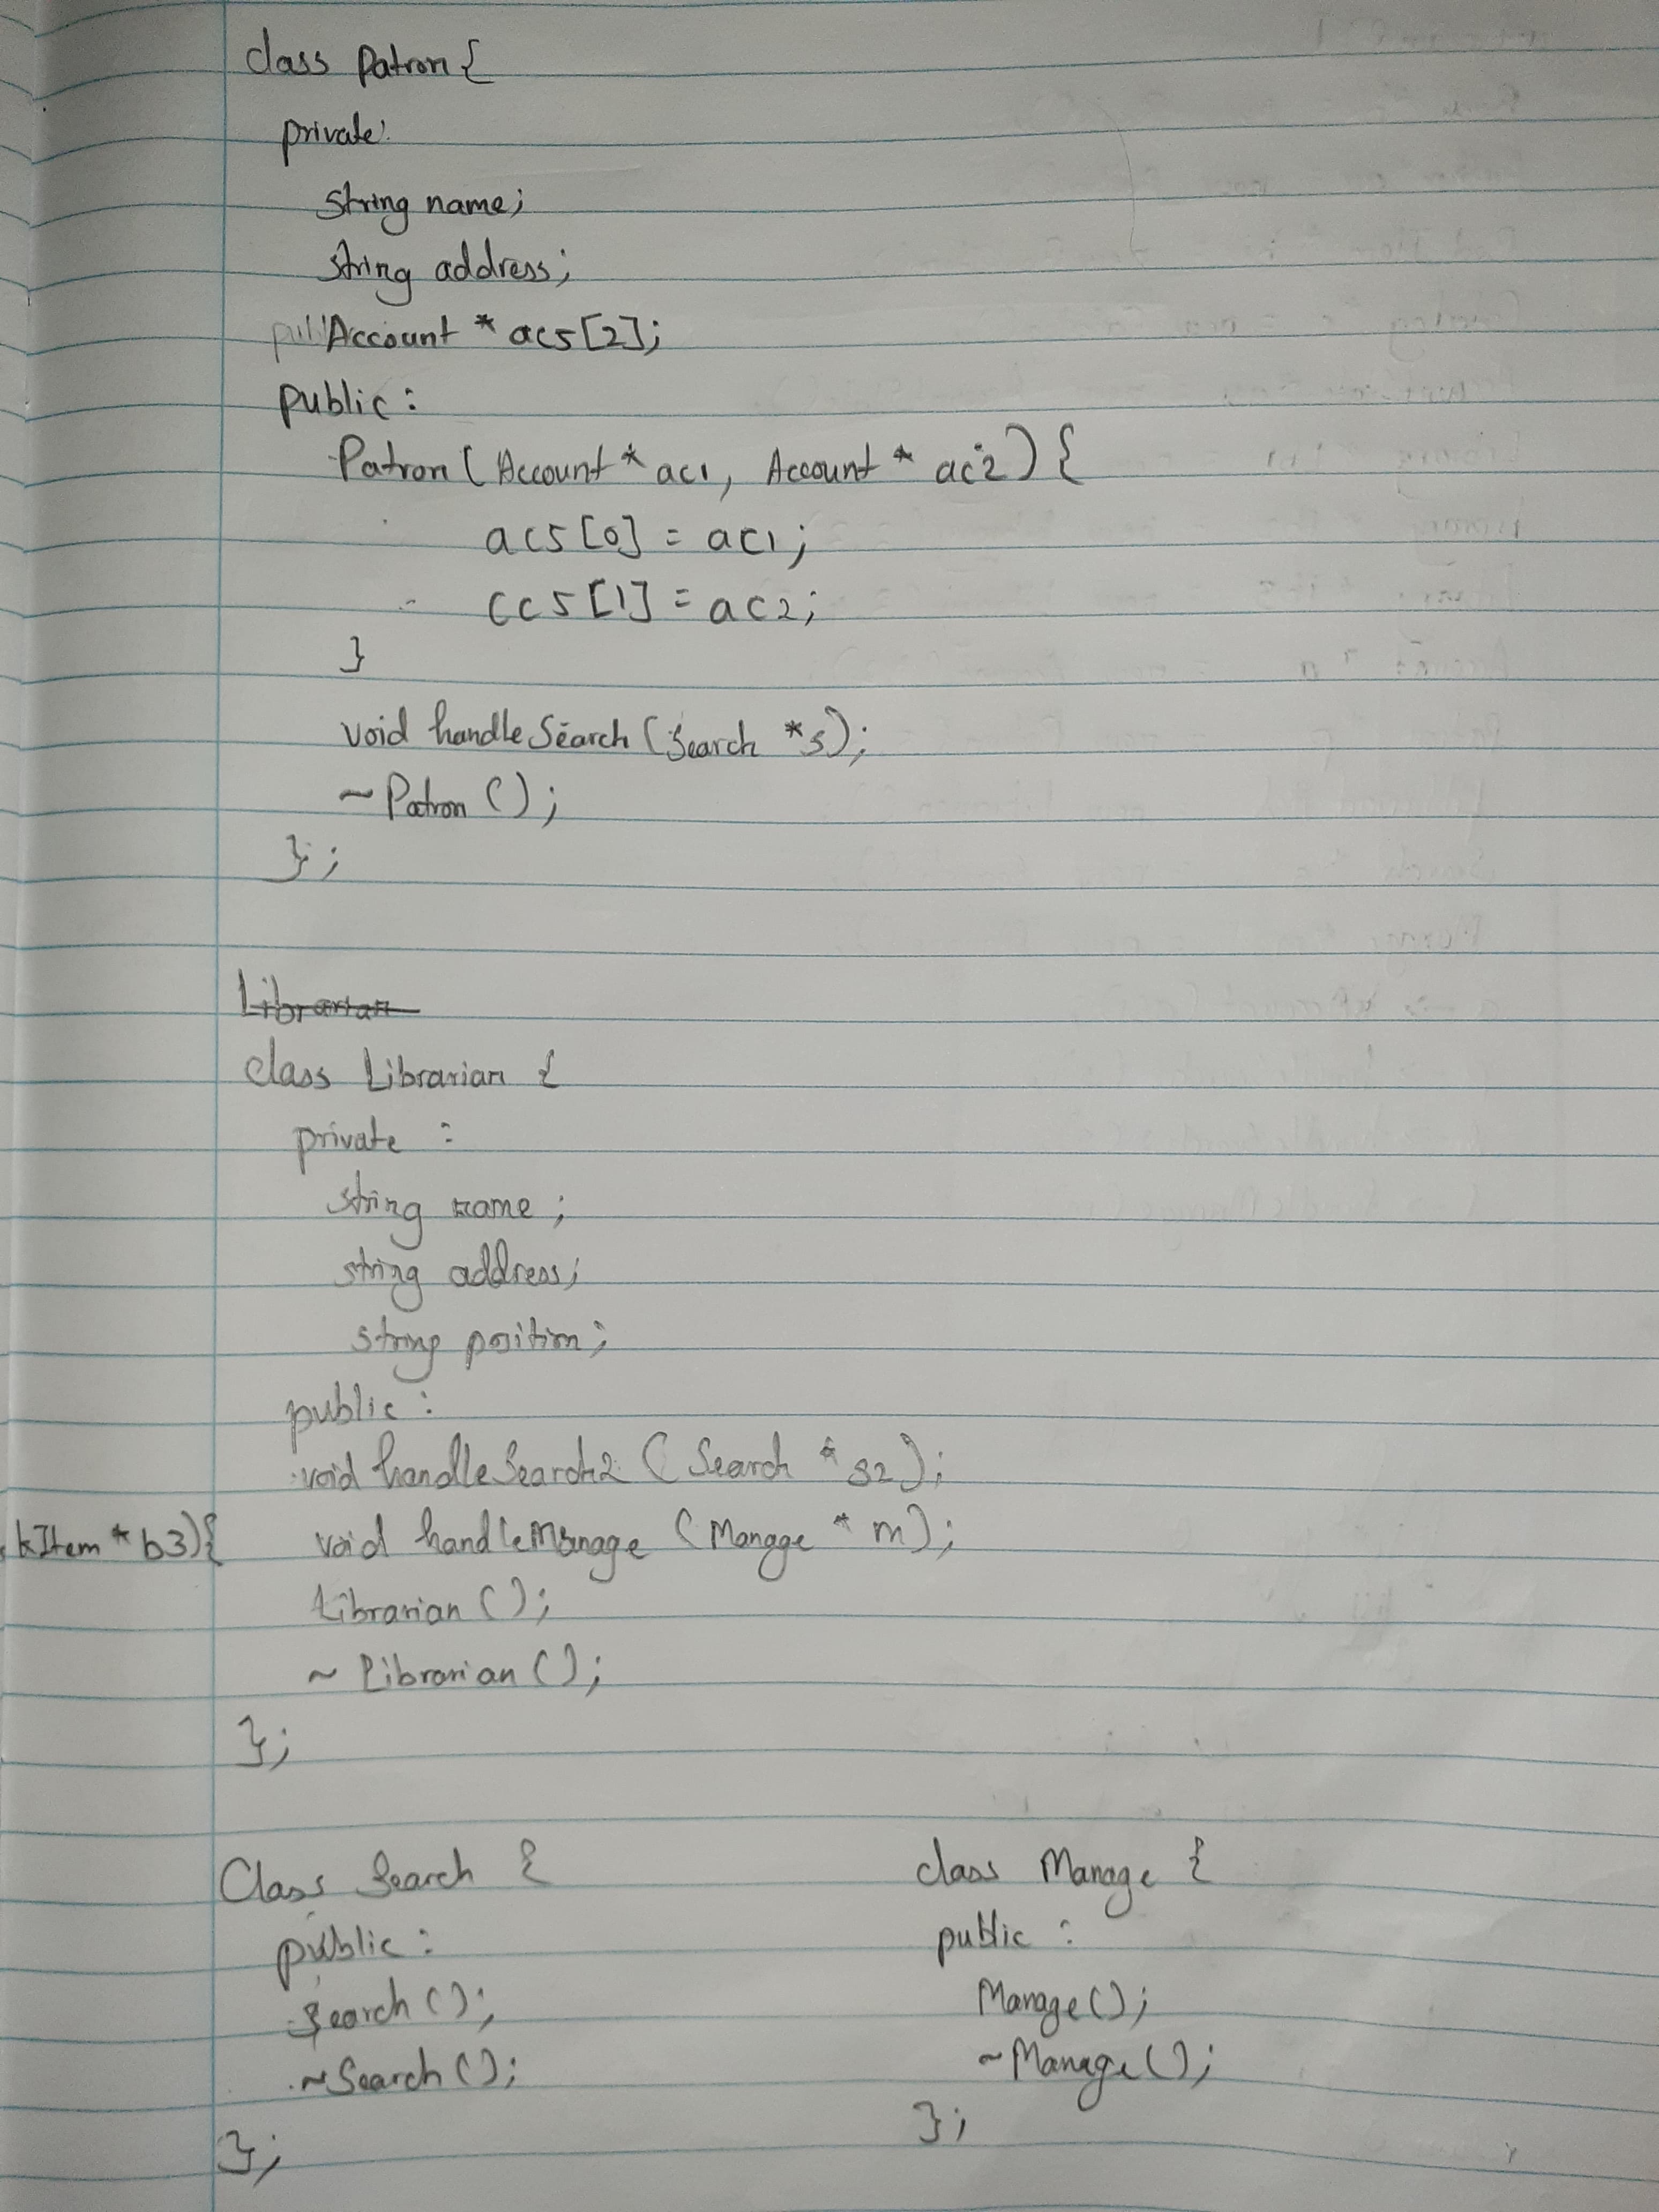 class Patron {
private:
string name;
string address;
Account * acs[2];
public:
Patron ( Account * ac1, Account * ac2) {
acs[0] = ac1;
ccs[1] = ac2;
}
void handleSearch (Search *s);
~ Patron ();
};
Librarian
class Librarian {
private :
string name ;
string address;
string position;
public :
void handleSearch2 ( Search * s2 );
kItem * b3){ void handleManage ( Manage * m);
Librarian ();
~ Librarian ();
};
Class Search { class Manage {
public : public :
Search (); Manage();
~Search (); ~Manage();
}; };